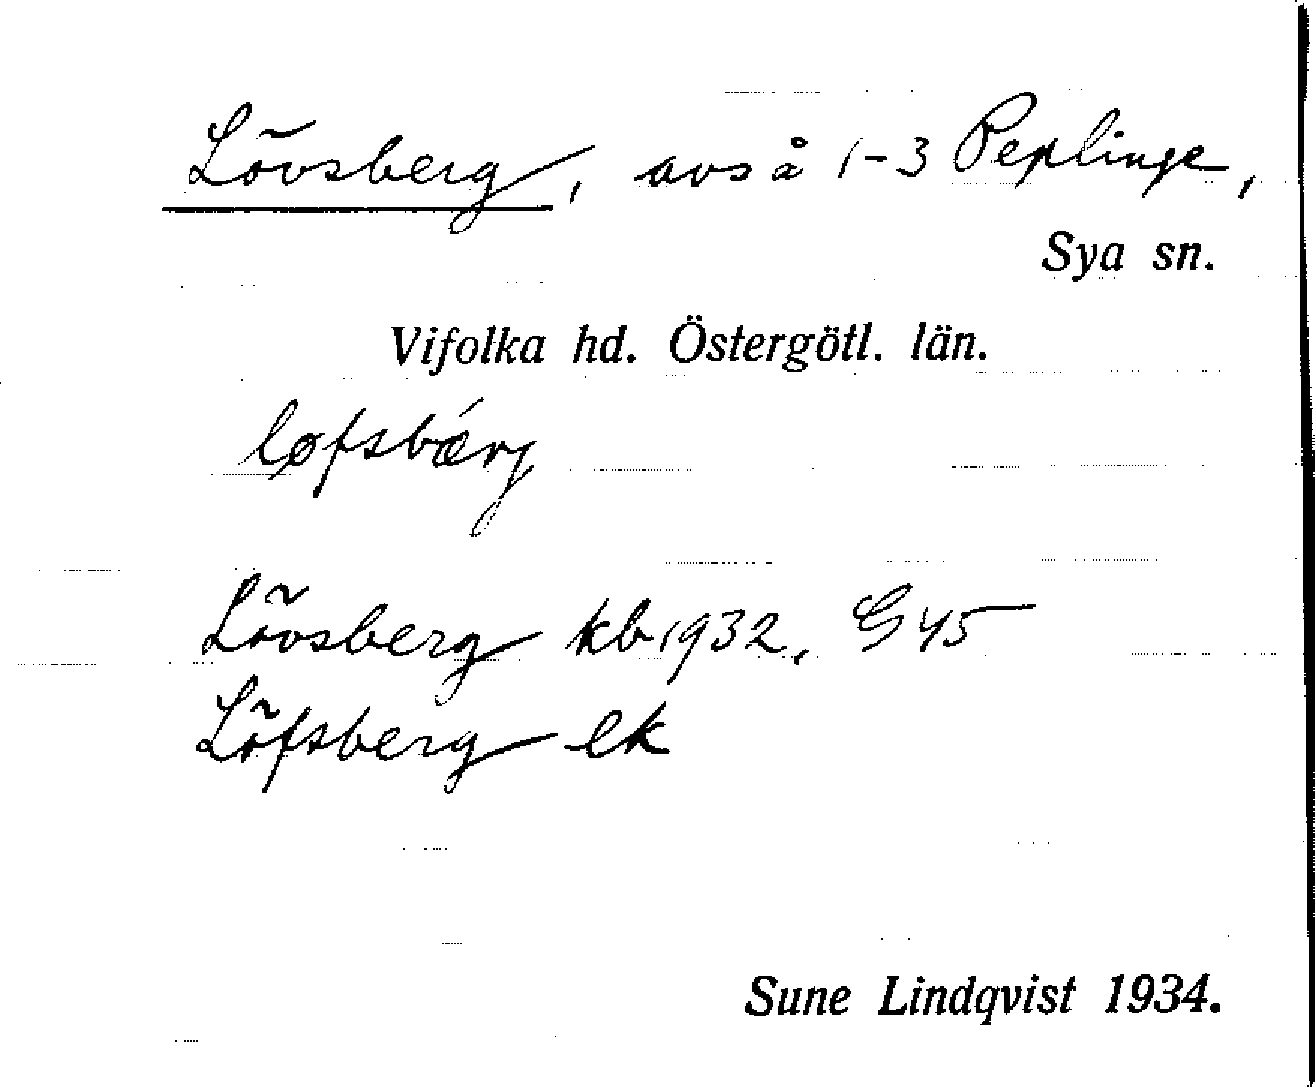 Lövsberg, avs å 1-3 Peplinge,
Sya sn.
Vifolka hd. Östergötl. län.
løfsbǽrj
Lövsberg kb 1932, G 45
Löfsberg ek
Sune Lindqvist 1934.